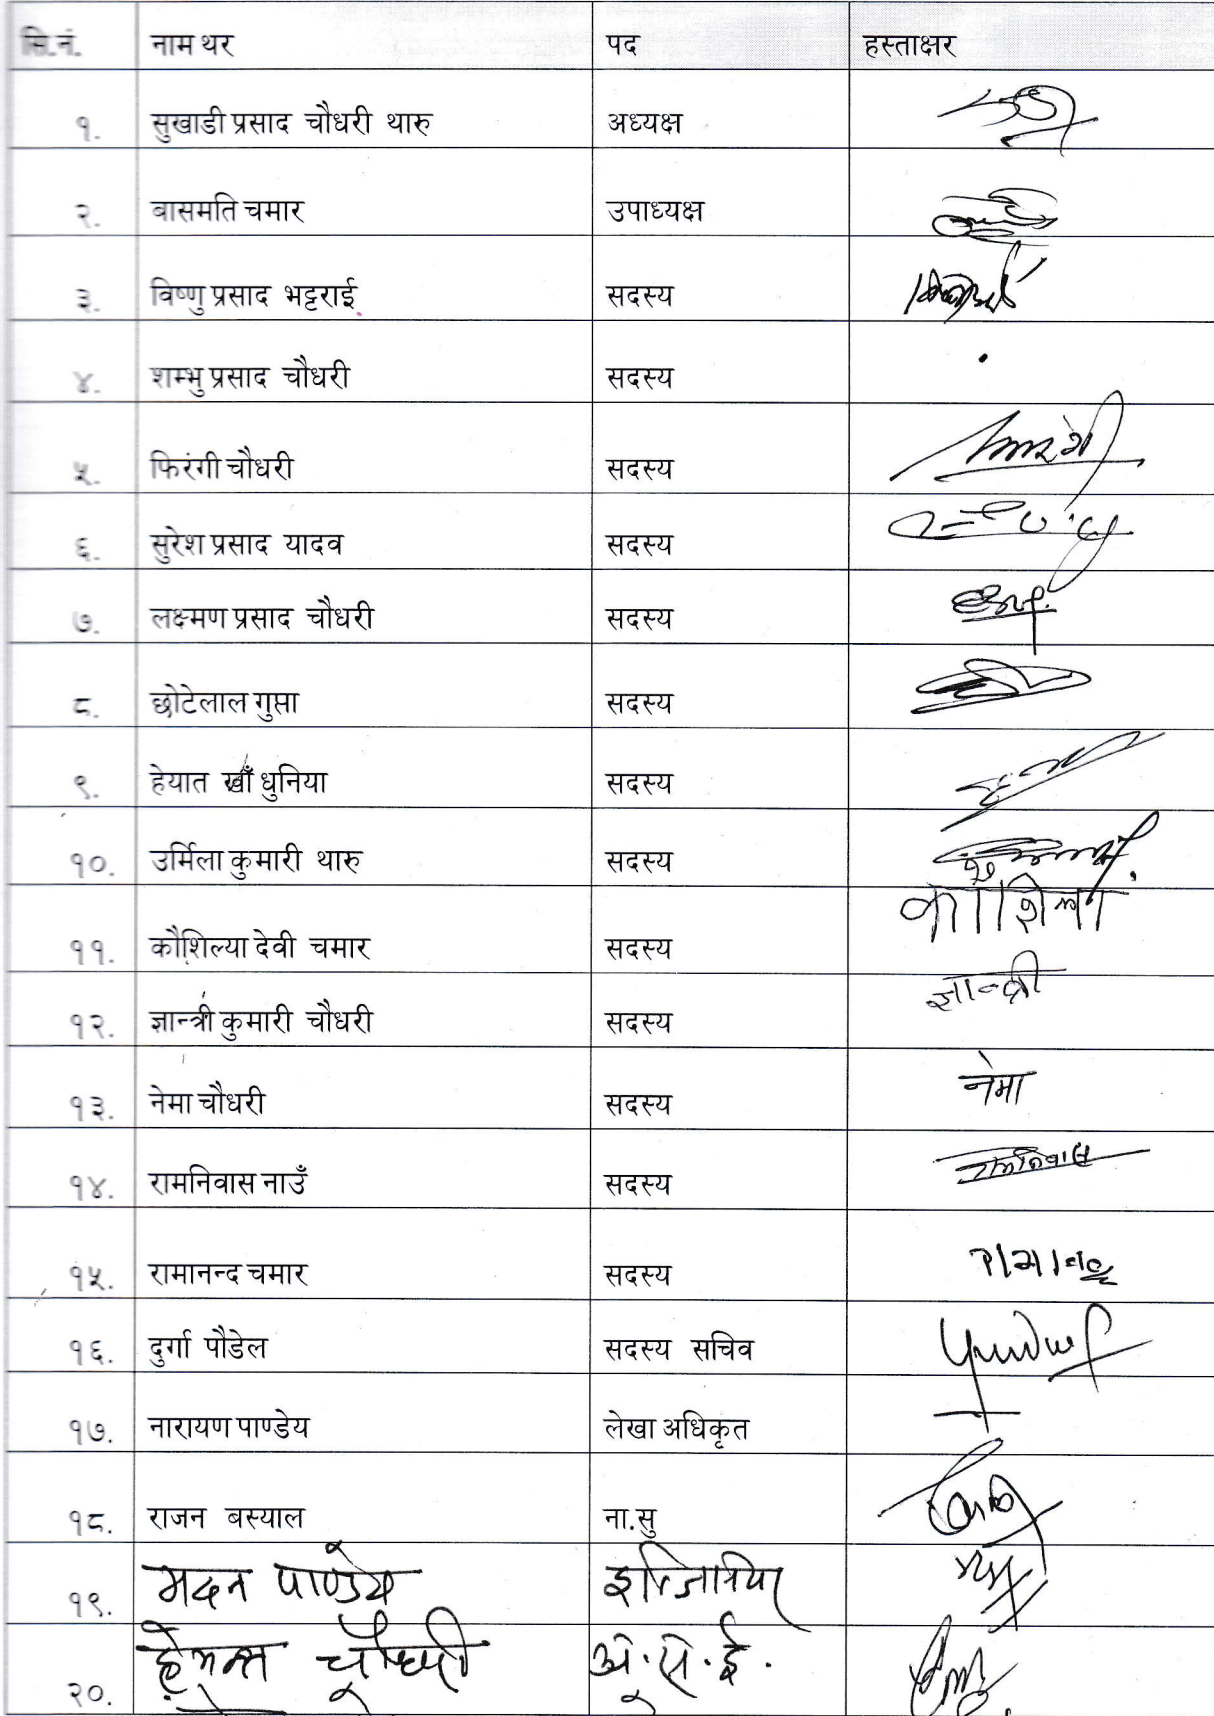 सि.नं. नाम थर पद हस्ताक्षर
१. सुखाडी प्रसाद चौधरी थारु अध्यक्ष
२. बासमति चमार उपाध्यक्ष
३. विष्णु प्रसाद भट्टराई सदस्य
४. शम्भु प्रसाद चौधरी सदस्य
५. फिरंगी चौधरी सदस्य
६. सुरेश प्रसाद यादव सदस्य
७. लक्ष्मण प्रसाद चौधरी सदस्य
८. छोटेलाल गुप्ता सदस्य
९. हेयात खाँ धुनिया सदस्य
१०. उर्मिला कुमारी थारु सदस्य
११. कौशिल्या देवी चमार सदस्य
१२. ज्ञान्त्री कुमारी चौधरी सदस्य ज्ञान्त्री
१३. नेमा चौधरी सदस्य नेमा
१४. रामनिवास नाउँ सदस्य रामनिवास
१५. रामानन्द चमार सदस्य रामानन्द
१६. दुर्गा पौडेल सदस्य सचिव
१७. नारायण पाण्डेय लेखा अधिकृत
१८. राजन बस्याल ना.सु
१९. मदन पाण्डेय
२०. चौधरी